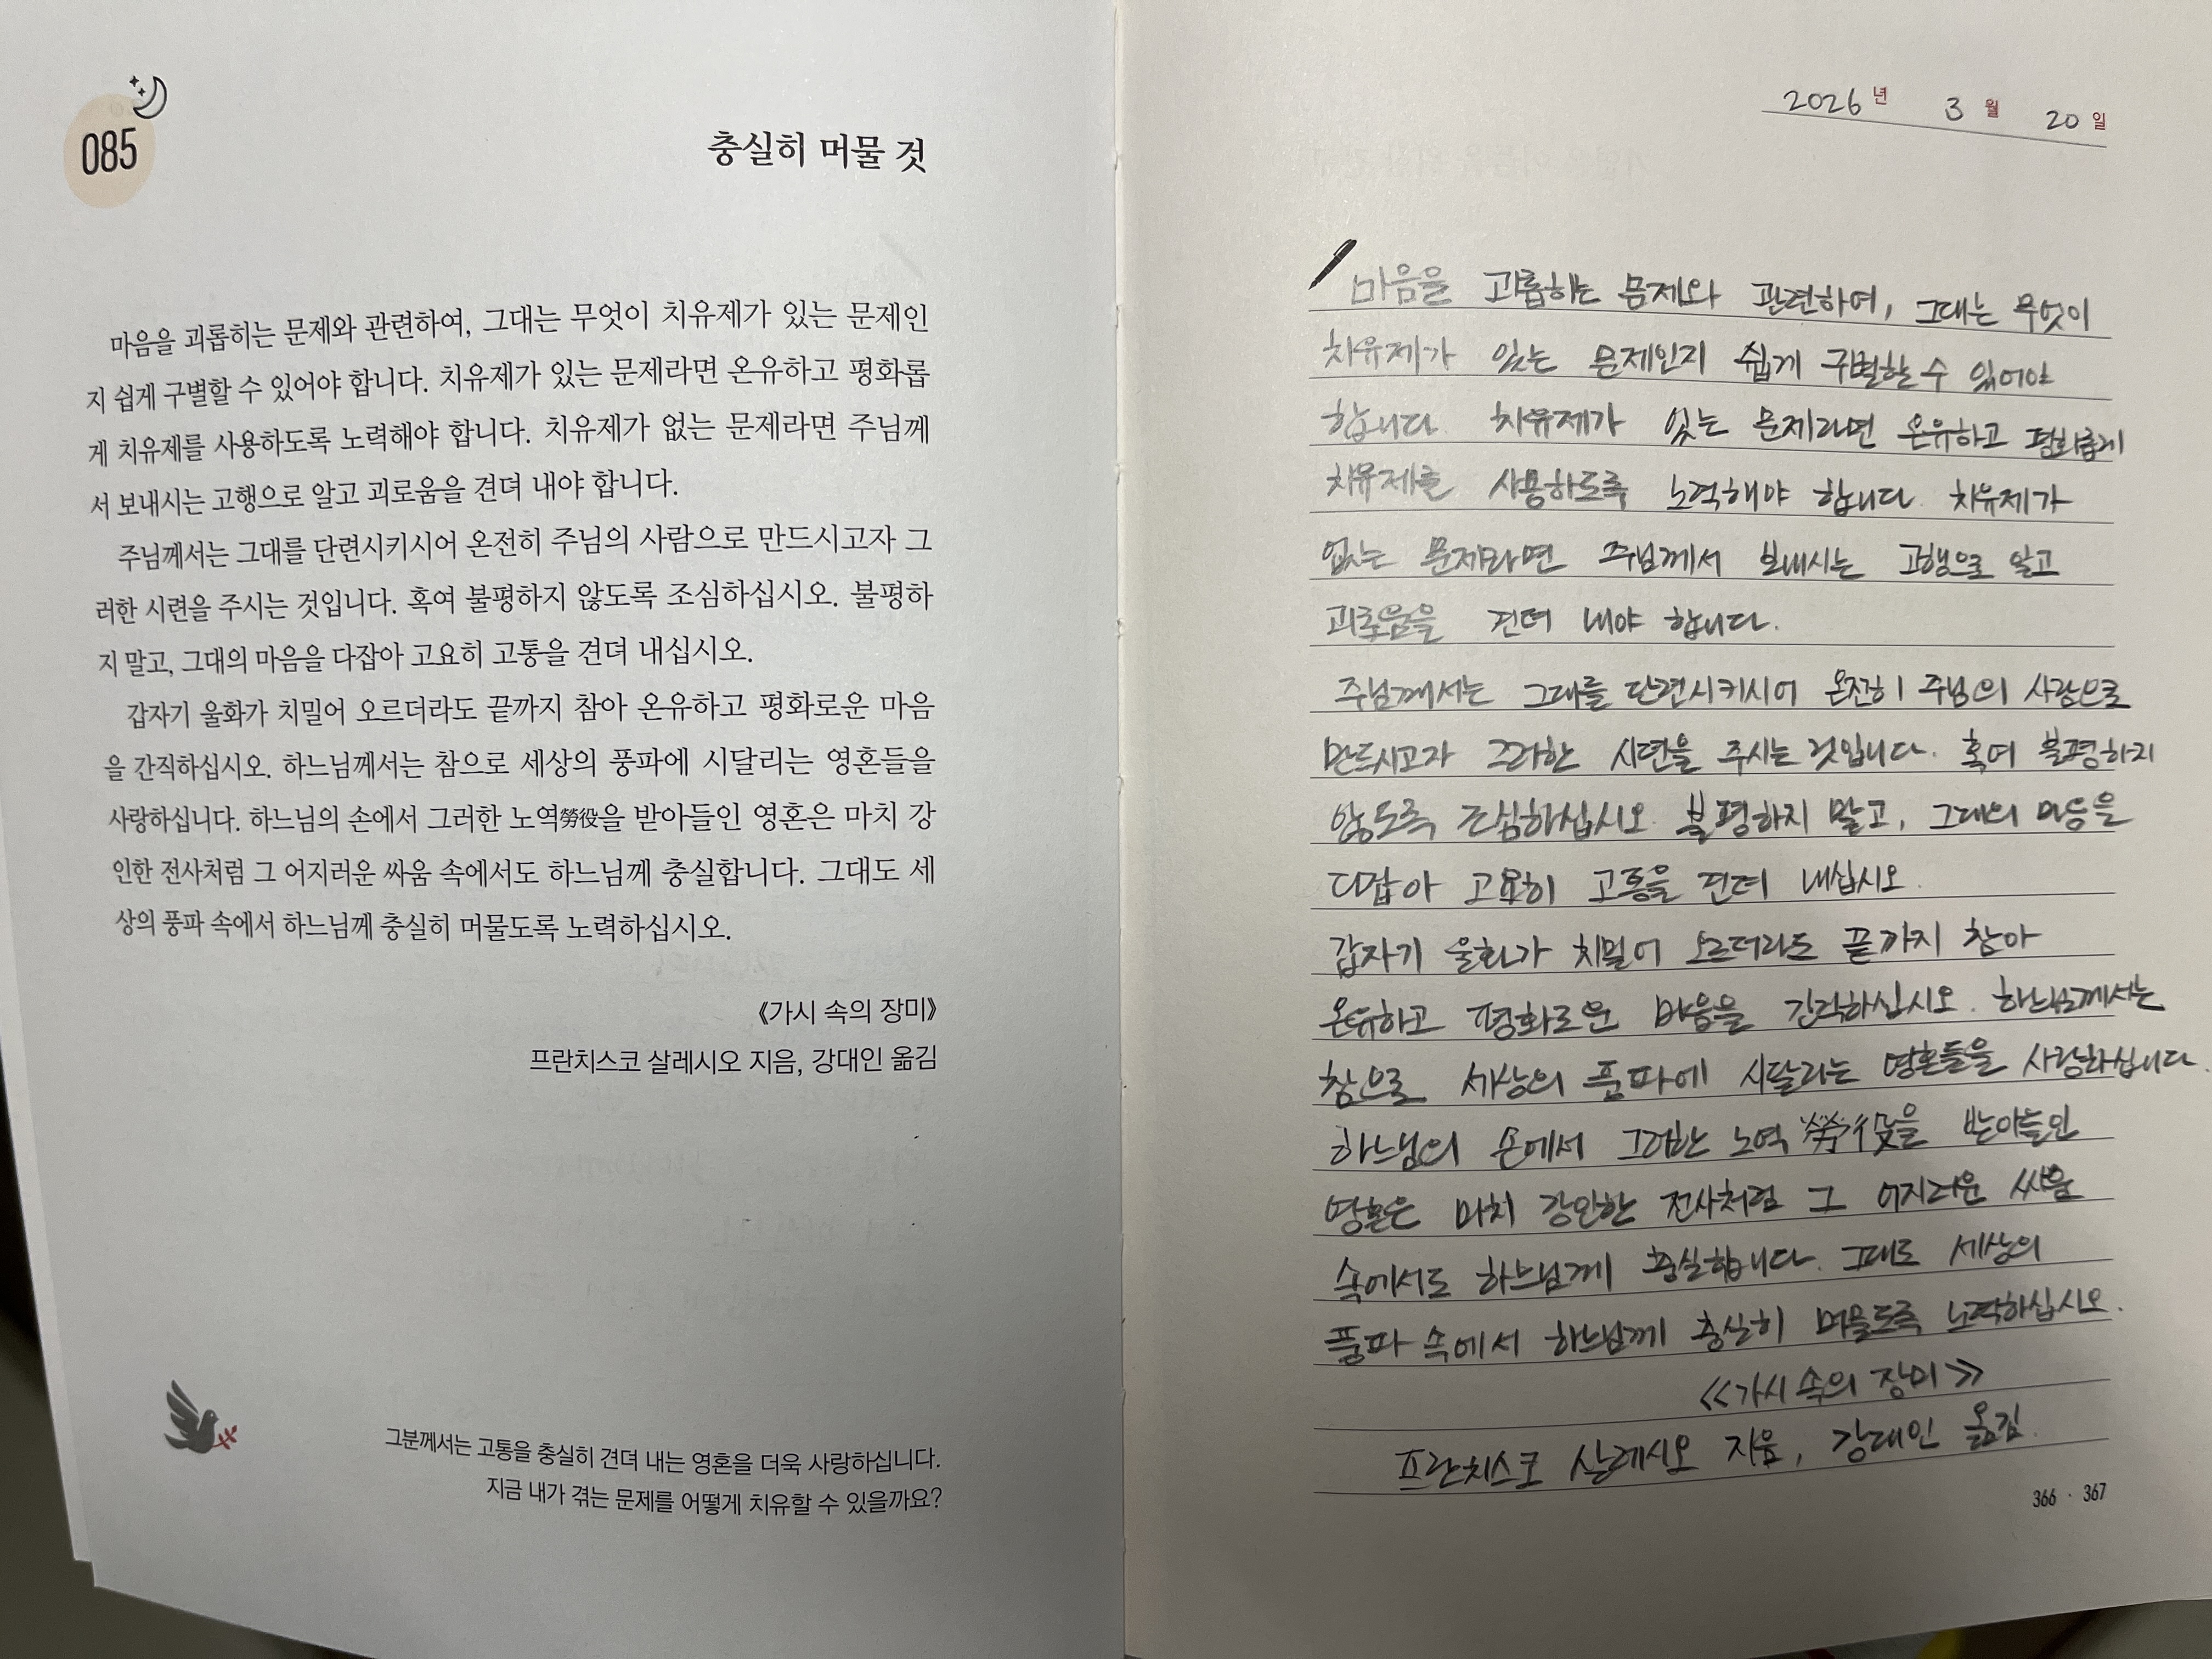 085
충실히 머물 것
마음을 괴롭히는 문제와 관련하여, 그대는 무엇이 치유제가 있는 문제인
지 쉽게 구별할 수 있어야 합니다. 치유제가 있는 문제라면 온유하고 평화롭
게 치유제를 사용하도록 노력해야 합니다. 치유제가 없는 문제라면 주님께
서 보내시는 고행으로 알고 괴로움을 견뎌 내야 합니다.
주님께서는 그대를 단련시키시어 온전히 주님의 사람으로 만드시고자 그
러한 시련을 주시는 것입니다. 혹여 불평하지 않도록 조심하십시오. 불평하
지 말고, 그대의 마음을 다잡아 고요히 고통을 견뎌 내십시오.
갑자기 울화가 치밀어 오르더라도 끝까지 참아 온유하고 평화로운 마음
을 간직하십시오. 하느님께서는 참으로 세상의 풍파에 시달리는 영혼들을
사랑하십니다. 하느님의 손에서 그러한 노역勞役을 받아들인 영혼은 마치 강
인한 전사처럼 그 어지러운 싸움 속에서도 하느님께 충실합니다. 그대도 세
상의 풍파 속에서 하느님께 충실히 머물도록 노력하십시오.
《가시 속의 장미》
프란치스코 살레시오 지음, 강대인 옮김
그분께서는 고통을 충실히 견뎌 내는 영혼을 더욱 사랑하십니다.
지금 내가 겪는 문제를 어떻게 치유할 수 있을까요?
2026년 3월 20일
마음을 괴롭히는 문제와 관련하여, 그대는 무엇이
치유제가 있는 문제인지 쉽게 구별할 수 있어야
합니다. 치유제가 있는 문제라면 온유하고 평화롭게
치유제를 사용하도록 노력해야 합니다. 치유제가
없는 문제라면 주님께서 보내시는 고행으로 알고
괴로움을 견뎌 내야 합니다.
주님께서는 그대를 단련시키시어 온전히 주님의 사람으로
만드시고자 그러한 시련을 주시는 것입니다. 혹여 불평하지
않도록 조심하십시오. 불평하지 말고, 그대의 마음을
다잡아 고요히 고통을 견뎌 내십시오.
갑자기 울화가 치밀어 오르더라도 끝까지 참아
온유하고 평화로운 마음을 간직하십시오. 하느님께서는
참으로 세상의 풍파에 시달리는 영혼들을 사랑하십니다.
하느님의 손에서 그러한 노역 勞役을 받아들인
영혼은 마치 강인한 전사처럼 그 어지러운 싸움
속에서도 하느님께 충실합니다. 그대도 세상의
풍파 속에서 하느님께 충실히 머물도록 노력하십시오.
≪가시 속의 장미≫
프란치스코 살레시오 지음, 강대인 옮김.
366 · 367